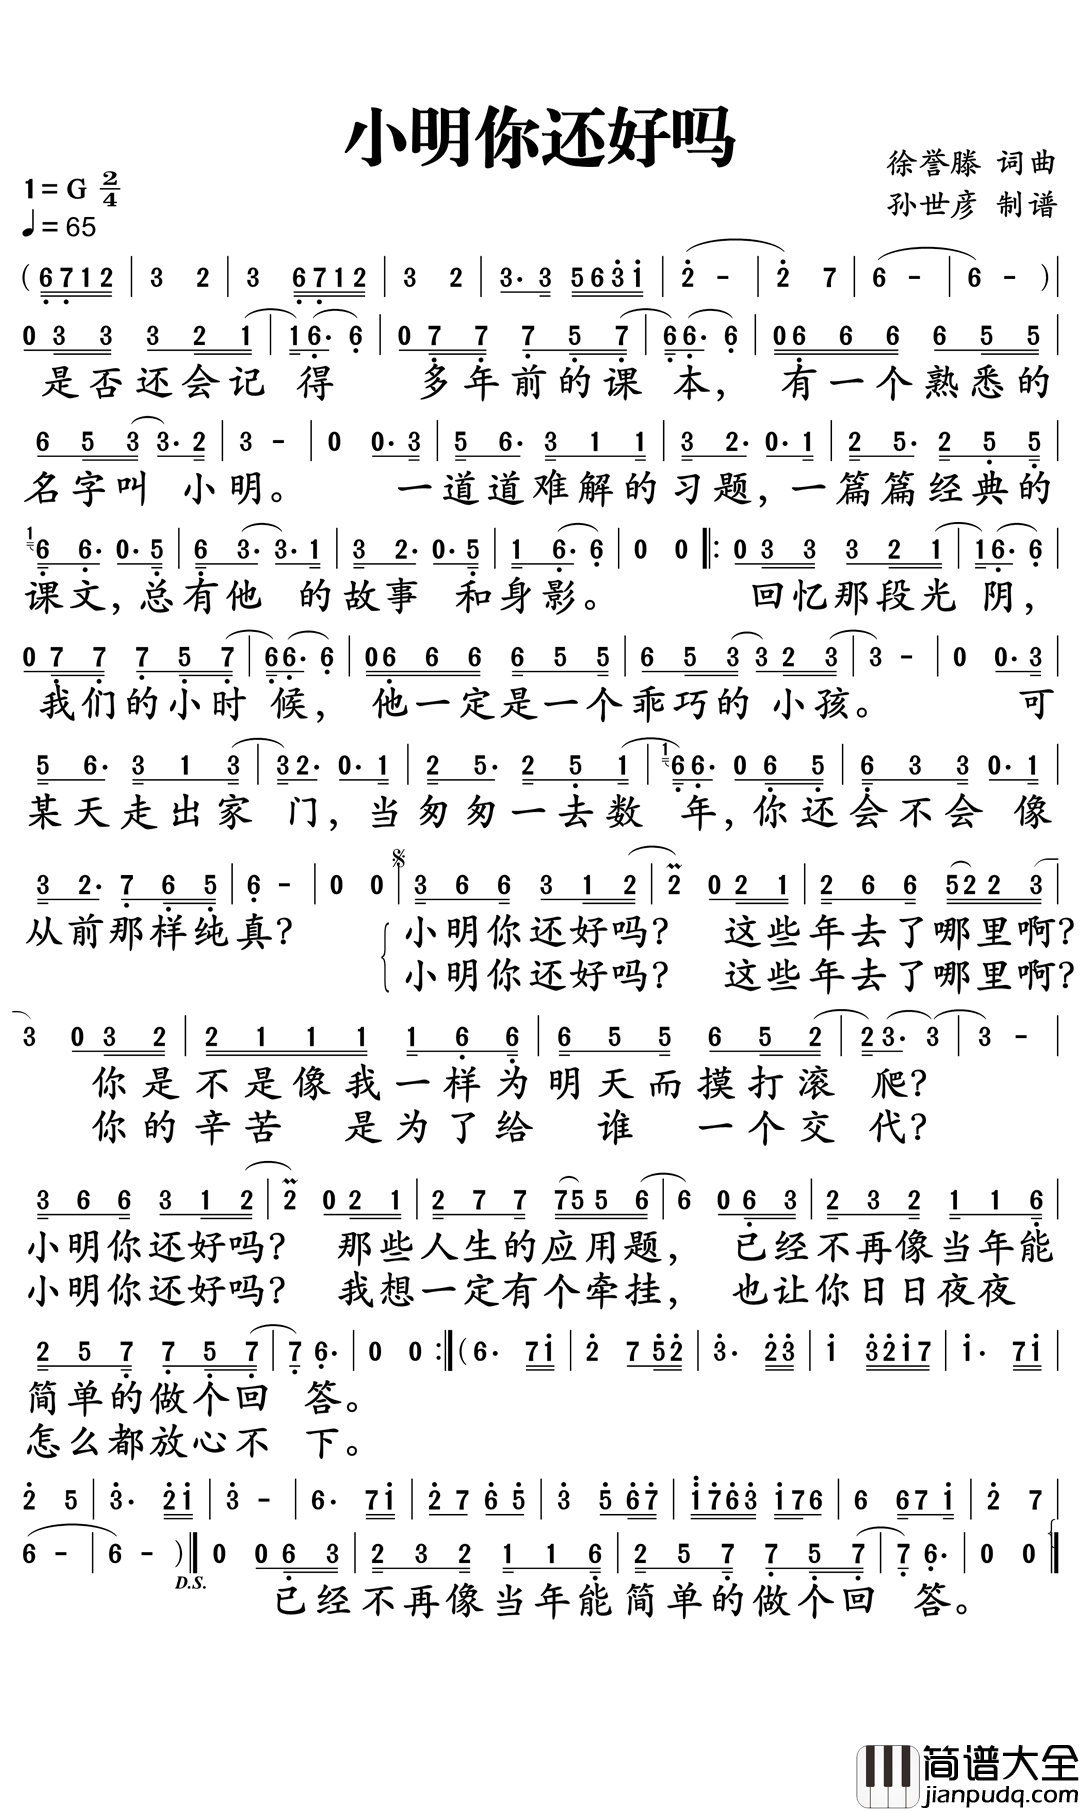 小明你还好吗
徐誉滕 词曲
孙世彦 制谱
1=G 2/4
♩=65
(6712|3 2|3 6712|3 2|3· 3 5631|2 -|2 7|6 -|6 -)|
0 3 3 3 2 1|16· 6|0 7 7 7 5 7|66· 6|06 6 6 6 5 5|
是否还会记 得 多年前的课 本，有一个熟悉的
6 5 3 3· 2|3 -|0 0· 3|5 6· 3 1 1|3 2· 0· 1|2 5· 2 5 5|
名字叫 小明。 一道道难解的习题，一篇篇经典的
1 6 6· 0· 5|6 3· 3· 1|3 2· 0· 5|1 6· 6|0 0‖:0 3 3 3 2 1|16· 6|
课文，总有他 的故事 和身影。 回忆那段光 阴，
0 7 7 7 5 7|66· 6|06 6 6 6 5 5|6 5 3 3 2 3|3 -|0 0· 3|
我们的小时 候，他一定是一个乖巧的 小孩。 可
5 6· 3 1 3|32· 0· 1|2 5· 2 5 1|1 66· 0 6 5|6 3 3 0· 1|
某天走出家 门，当匆匆一去数 年，你还会不会 像
3 2· 7 6 5|6 -|0 0|3 6 6 3 1 2|2 0 2 1|2 6 6 522 3|
从前那样纯真? 小明你还好吗? 这些年去了哪里啊?
小明你还好吗? 这些年去了哪里啊?
3 0 3 2|2 1 1 1 1 6 6|6 5 5 6 5 2|23· 3|3 -|
你是不是像我一样为明天而摸打滚 爬?
你的辛苦 是为了给 谁 一个交 代?
3 6 6 3 1 2|2 0 2 1|2 7 7 755 6|6 0 6 3|2 3 2 1 1 6|
小明你还好吗? 那些人生的应用题， 已经不再像当年能
小明你还好吗? 我想一定有个牵挂， 也让你日日夜夜
2 5 7 7 5 7|7 6·|0 0:‖(6· 71|2 7 52|3· 23|1 3217|1· 71|
简单的做个回 答。
怎么都放心不 下。
2 5|3· 21|3 -|6· 71|27 65|3 5 67|1763 176|6 67 1|2 7|
6 -|6 -)‖0 0 6 3|2 3 2 1 1 6|2 5 7 7 5 7|7 6·|0 0‖
D.S.
已经不再像当年能简单的做个回 答。
简谱大全
jianpudq.com